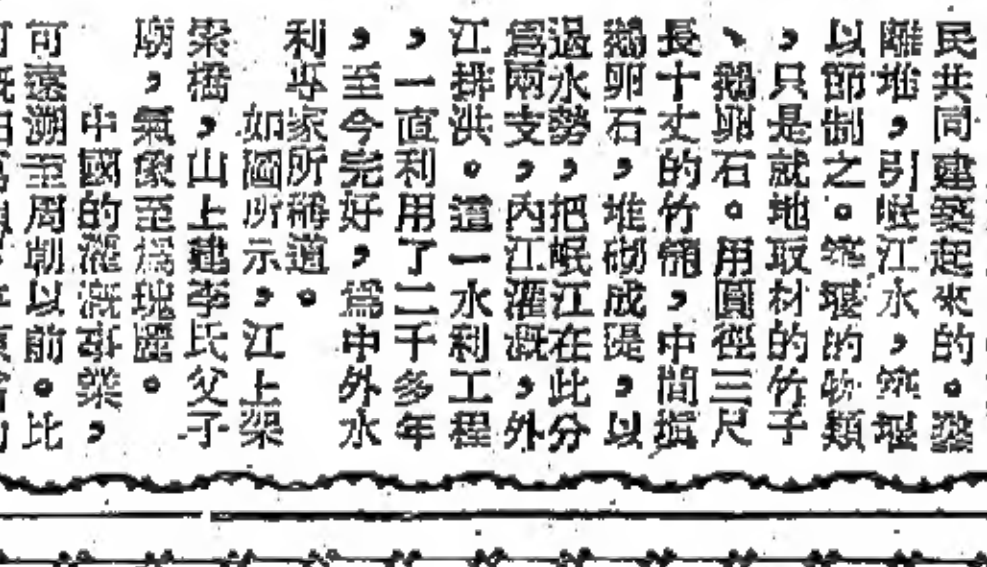 民共同建築起來的。鑿
離堆,引岷江水,築堰
以節制之。築堰的物類
,只是就地取材的竹子
、鵝卵石。用圓徑三尺
長十丈的竹籠,中間填
鵝卵石,堆砌成堤,以
過水勢,把岷江在此分
爲兩支,內江灌溉,外
江排洪。這一水利工程
,一直利用了二千多年
,至今完好,爲中外水
利專家所稱道。
如圖所示,江上架
索橋,山上建李氏父子
廟,氣象至爲瑰麗。
中國的灌溉事業,
可遠溯至周朝以前。比